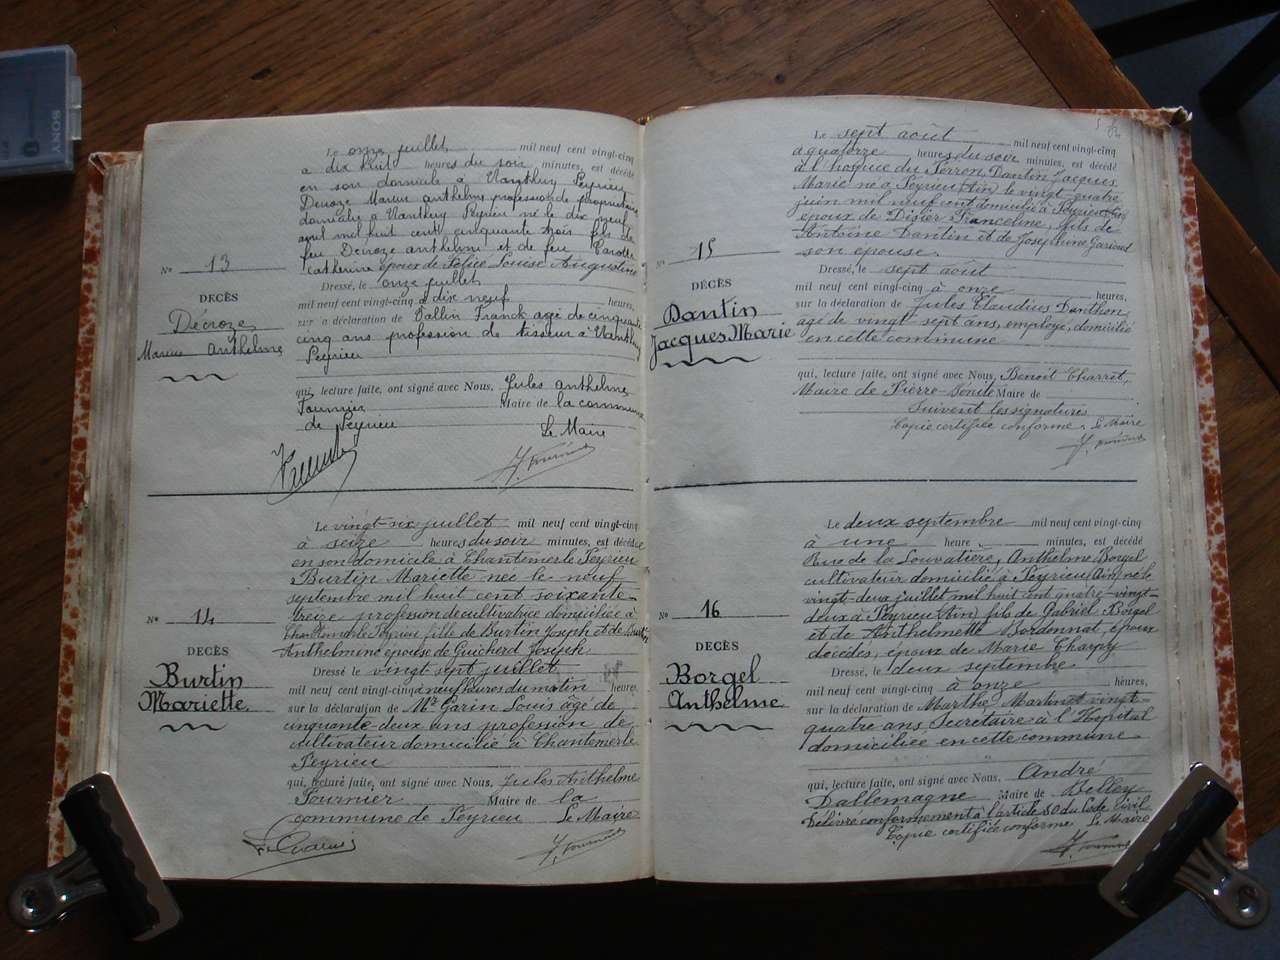 SONY
Le onze juillet mil neuf cent vingt-cinq
a dix huit heures du soir minutes, est décédé
en son domicile à Nanthuy Peyrieu
Décroze Marcus Anthelme profession de propriétaire
domicilié à Nanthuy Peyrieu né le dix neuf
avril mil huit cent cinquante trois fils de
feu Décroze anthelme et de feu
Catherine époux de Félice Louise Augustine
Nº 13
DÉCÈS
Décroze
Marcus Anthelme
Dressé, le onze juillet
mil neuf cent vingt-cinq a dix neuf heures,
sur la déclaration de Vallin Franck agé de cinquante
cinq ans profession de tisseur à Nanthuy
Peyrieu
qui, lecture faite, ont signé avec Nous, Jules anthelme
Fournier Maire de la commune
de Peyrieu Le Maire
J. Fournier
Le vingt-six juillet mil neuf cent vingt-cinq
à seize heures du soir minutes, est décédée
en son domicile à Chantemerle Peyrieu
Burtin Mariette née le neuf
septembre mil huit cent soixante-
treize profession de cultivatrice domiciliée à
Chantemerle Peyrieu fille de Burtin Joseph et de
Anthelmine épouse de Guicherd Joseph
Nº 14
DÉCÈS
Burtin
Mariette
Dressé le vingt sept juillet
mil neuf cent vingt-cinq à neuf heures du matin heures,
sur la déclaration de Mr Garin Louis âgé de
cinquante deux ans profession de
cultivateur domicilié à Chantemerle
Peyrieu
qui, lecture faite, ont signé avec Nous, Jules Anthelme
Fournier Maire de la
commune de Peyrieu Le Maire
J. Fournier
Le sept août mil neuf cent vingt-cinq
à quatorze heures du soir minutes, est décédé
à l'hospice du Perron, Dantin Jacques
Marie né à Peyrieu (Ain) le vingt quatre
juin mil neuf cent domicilié à Peyrieu (Ain)
époux de Disier Franceline, fils de
Antoine Dantin et de Joséphine
son épouse.
Nº 15
DÉCÈS
Dantin
Jacques Marie
Dressé, le sept août
mil neuf cent vingt-cinq à onze heures,
sur la déclaration de Jules Claudius Danthon
âgé de vingt sept ans, employé, domicilié
en cette commune
qui, lecture faite, ont signé avec Nous, Benoit Charret,
Maire de Pierre-Bénite Maire de
Suivent les signatures
Copie certifiée conforme. Le Maire
J. Fournier
Le deux septembre mil neuf cent vingt-cinq
à une heure minutes, est décédé
Rue de la Louvatière, Anthelme Borgel
cultivateur domicilié à Peyrieu (Ain) né le
vingt-deux juillet mil huit cent quatre-vingt-
deux à Peyrieu (Ain) fils de Gabriel Borgel
et de Anthelmette Bordennat, époux
décédés, époux de Marie Charpy
Nº 16
DÉCÈS
Borgel
Anthelme
Dressé, le deux septembre
mil neuf cent vingt-cinq à onze heures,
sur la déclaration de Marthe Martinet vingt-
quatre ans Secrétaire à l'Hôpital
domiciliée en cette commune
qui, lecture faite, ont signé avec Nous, André
Dallemagne Maire de Belley
Délivré conformément à l'article 80 du Code civil
Copie certifiée conforme Le Maire
J. Fournier